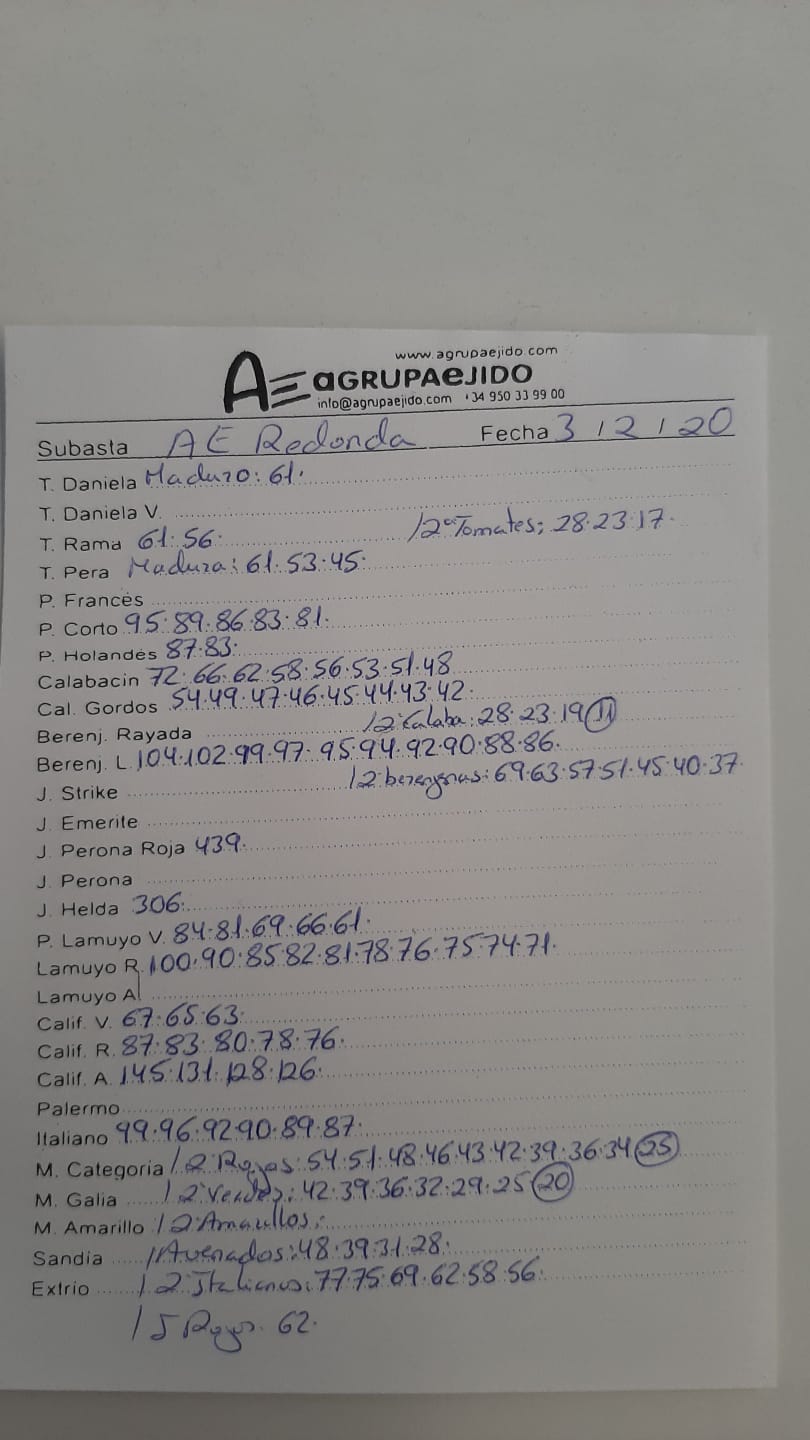 www.agrupaejido.com
AE aGRUPAeJIDO
info@agrupaejido.com +34 950 33 99 00
Subasta AE Redonda Fecha 3/2/20
T. Daniela Maduro: 61.
T. Daniela V.
T. Rama 61. 56. /2ª Tomates; 28.23.17.
T. Pera Madura: 61.53.45.
P. Francés
P. Corto 95.89.86.83.81.
P. Holandés 87.83.
Calabacin 72.66.62.58.56.53.51.48
Cal. Gordos 54.49.47.46.45.44.43.42.
Berenj. Rayada /2ª Calaba: 28.23.19 (11)
Berenj. L. 104.102.99.97. 95.94.92.90.88.86.
J. Strike /2ª berenjenas: 69.63.57.51.45.40.37.
J. Emerite
J. Perona Roja 439.
J. Perona
J. Helda 306.
P. Lamuyo V. 84.81.69.66.61.
Lamuyo R. 100.90.85.82.81.78.76.75.74.71.
Lamuyo A.
Calif. V. 67.65.63.
Calif. R. 87.83.80.78.76.
Calif. A. 145.131.128.126.
Palermo
Italiano 99.96.92.90.89.87.
M. Categoria /2ª Rojos: 54.51.48.46.43.42.39.36.34 (25)
M. Galia /2ª Verdes: 42.39.36.32.29.25 (20)
M. Amarillo /2 Amarillos:
Sandia /Avenados: 48.39.31.28.
Extrio /2 Italianos: 77.75.69.62.58.56.
/J Rojos. 62.